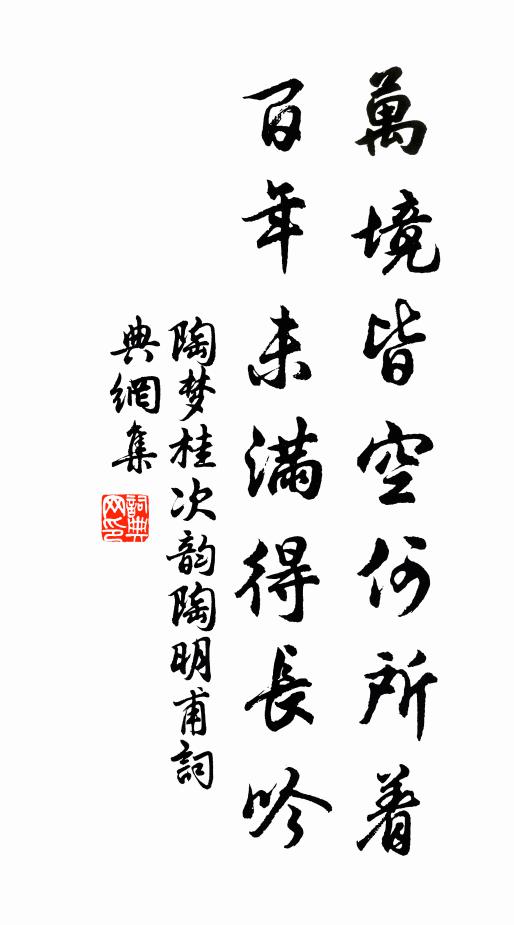 萬境皆空何所着
百年未滿得長吟
陶梦桂次韵陶明甫詞
典網集
詞典网印